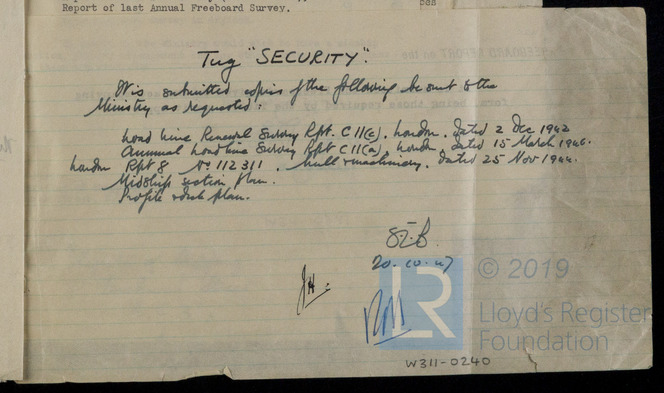 Report of last Annual Freeboard Survey.
Tug "SECURITY".
It is submitted copies of the following be sent to the
Ministry as requested:
Load Line Renewal Survey Rpt. C11(c). London. dated 2 Dec 1942
Annual Load Line Survey Rpt C11(a). London. dated 15 March 1946.
London Rpt 8 No 112311. Hull & machinery. dated 25 Nov 1944.
Midship section plan.
Profile & deck plan.
20.10.47
JH.
LR
© 2019
Lloyd's Register
Foundation
W311-0240